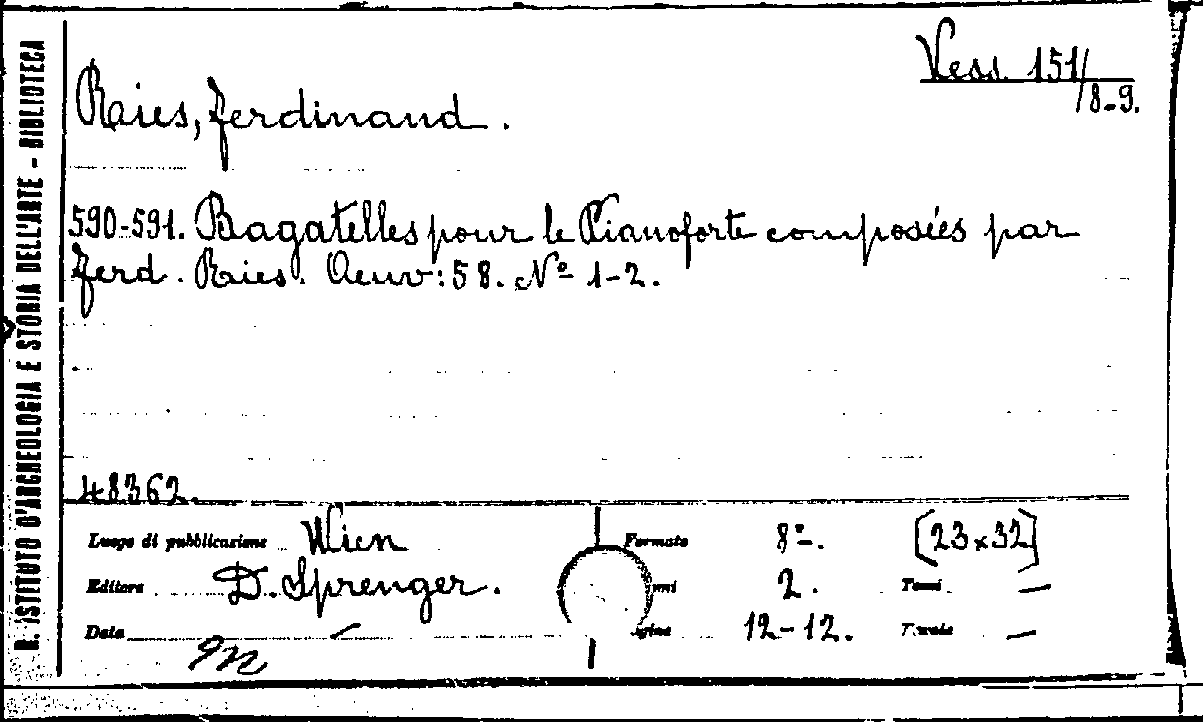 R. ISTITUTO D'ARCHEOLOGIA E STORIA DELL'ARTE - BIBLIOTECA
Vess. 151/
8-9.
Raies, Ferdinand.
590-591. Bagatelles pour le Pianoforte composiés par
Ferd. Raies. Oeuv: 58. Nº 1-2.
48362.
Luogo di pubblicazione Wien
Formato 8º. [23x32]
Editore D. Sprenger.
umi 2. Tomi —
Data —
agine 12-12. Tavole —